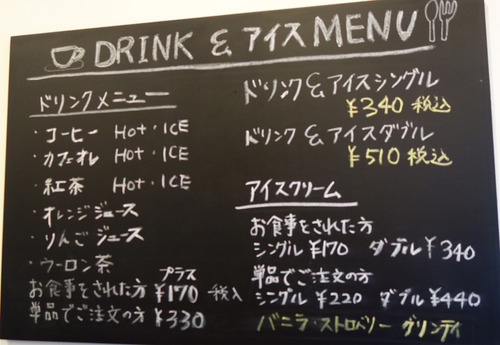 DRINK & アイス MENU
ドリンクメニュー
・コーヒー Hot・ICE
・カフェオレ Hot・ICE
・紅茶 Hot・ICE
・オレンジジュース
・りんごジュース
・ウーロン茶
プラス
お食事をされた方 ¥170 税込
単品でご注文の方 ¥330
ドリンク&アイスシングル
¥340 税込
ドリンク&アイスダブル
¥510 税込
アイスクリーム
お食事をされた方
シングル ¥170 ダブル ¥340
単品でご注文の方
シングル ¥220 ダブル ¥440
バニラ・ストロベリー グリンティ